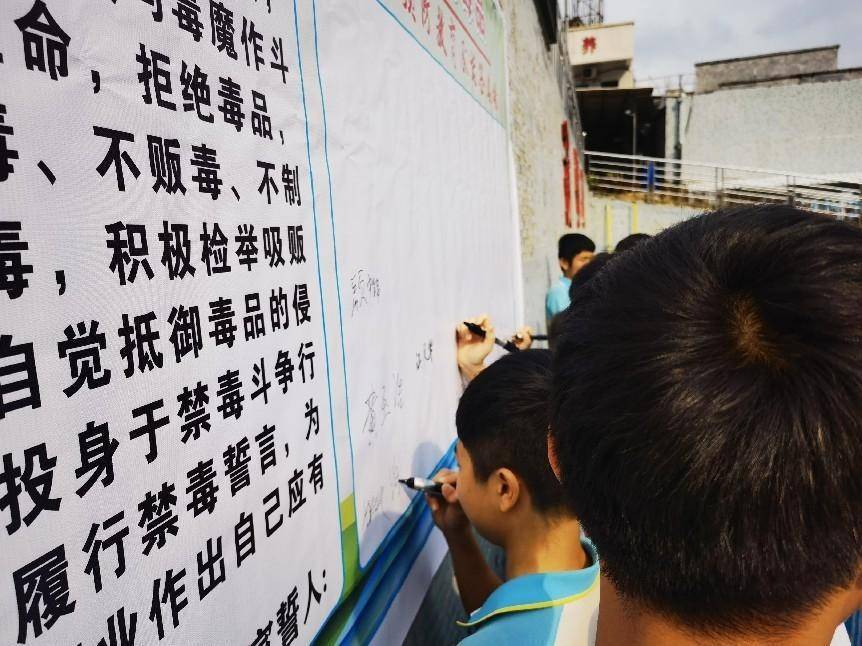 与毒魔作斗
命，拒绝毒品，
毒、不贩毒、不制
毒，积极检举吸贩
自觉抵御毒品的侵
投身于禁毒斗争行
履行禁毒誓言，为
业作出自己应有
宣誓人：
预防教育
养